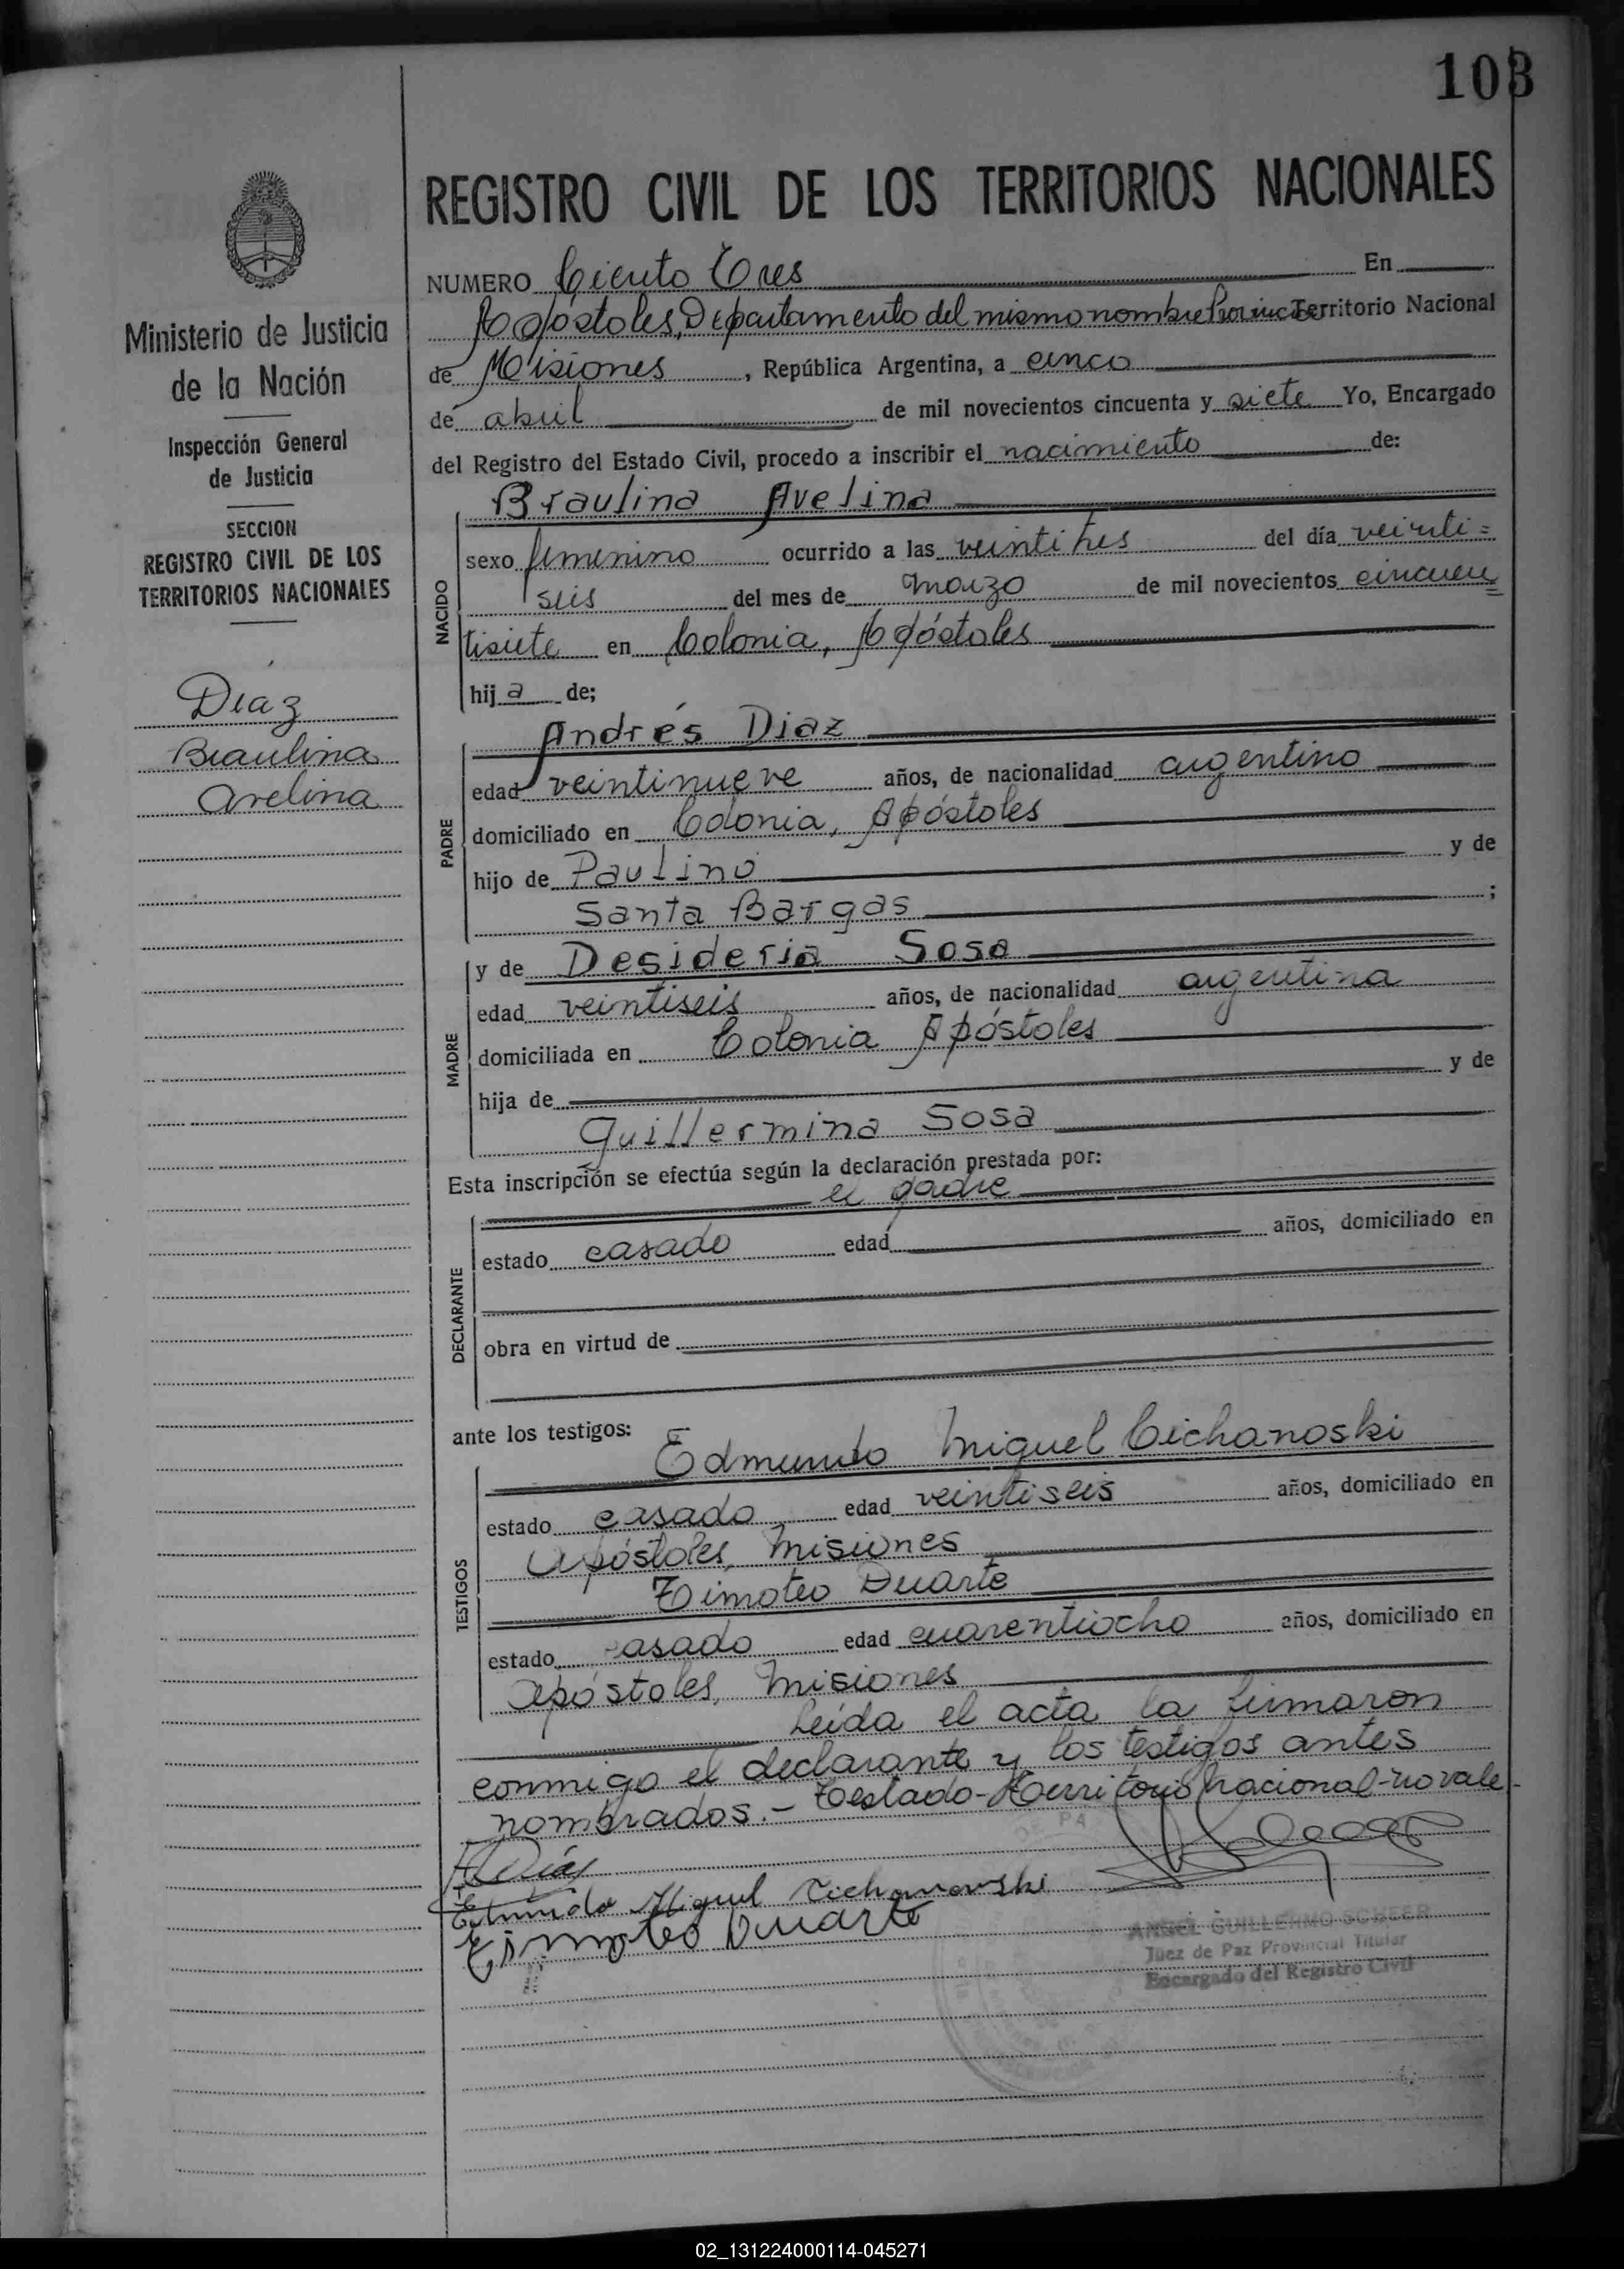 103
REGISTRO CIVIL DE LOS TERRITORIOS NACIONALES
Ministerio de Justicia
de la Nación
Inspección General
de Justicia
SECCION
REGISTRO CIVIL DE LOS
TERRITORIOS NACIONALES
Díaz
Braulina
Avelina
NUMERO Ciento Tres En
Apóstoles, Departamento del mismo nombre Provincia Territorio Nacional
de Misiones, República Argentina, a cinco
de abril de mil novecientos cincuenta y siete Yo, Encargado
del Registro del Estado Civil, procedo a inscribir el nacimiento de:
Braulina Avelina
NACIDO
sexo femenino ocurrido a las veintitres del día veinti=
seis del mes de marzo de mil novecientos cincuen=
tisiete en Colonia, Apóstoles
hij a de;
PADRE
Andrés Díaz
edad veintinueve años, de nacionalidad argentino
domiciliado en Colonia, Apóstoles
hijo de Paulino y de
Santa Bargas ;
MADRE
y de Desideria Sosa
edad veintiseis años, de nacionalidad argentina
domiciliada en Colonia Apóstoles
hija de y de
Guillermina Sosa
Esta inscripción se efectúa según la declaración prestada por:
DECLARANTE
el padre
estado casado edad años, domiciliado en
obra en virtud de
ante los testigos:
TESTIGOS
Edmundo Miguel Cichanoski
estado casado edad veintiseis años, domiciliado en
Apóstoles, Misiones
Timoteo Duarte
estado casado edad cuarentiocho años, domiciliado en
Apóstoles, Misiones
Leída el acta la firmaron
conmigo el declarante y los testigos antes
nombrados.- Testado-Territorio Nacional-no vale-
A Díaz
Edmundo Miguel Cichanowski
Timoteo Duarte
ANGEL GUILLERMO SCHEER
Juez de Paz Provincial Titular
Encargado del Registro Civil
02_131224000114-045271